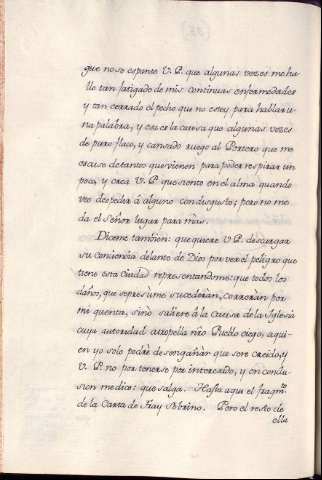 que no se espante V. P. que algunas vezes me ha-
lle tan fatigado de mis continuas enfermedades
y tan cerrado el pecho que no estoy para hablar u-
na palabra, y esta es la causa que algunas vezes
de puro flaco, y cansado ruego al Portero que me
escuse de tantos que vienen para poder respirar un
poco, y crea V. P. que siento en el alma quando
veo despedir á alguno con disgusto; pero no me
da el Señor lugar para mas.
Diceme tambien: que quiere V. P. descargar
su conciencia delante de Dios por ver el peligro que
tiene esta Ciudad representandome: que todos los
daños, que se presume sucederan, correran por
mi quenta, sino saliere á la causa de la Iglesia
cuya autoridad atropella nro Pueblo ciego, a qui-
en yo solo podre desengañar que sere creido, y
V. P. no por tenerse por interesado, y en conclu-
sion me dice: que salga. Hasta aqui el fragmto
de la Carta de Fray Sobrino. Pero el resto de
ella